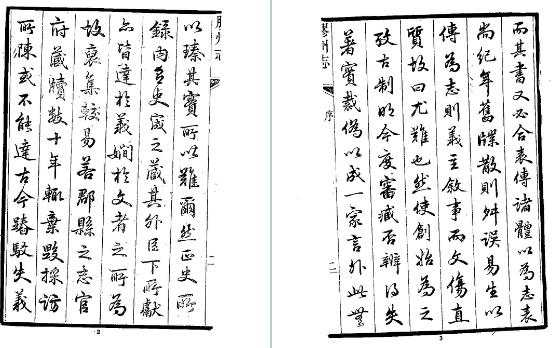 而其書又必合表傳諸體以為志表
尚紀年舊牒散則舛誤易生以
傳為志則義主敘事而文傷直
質故曰尤難也然使創始為之
攷古制明今度審臧否辨得失
著實裁偽以成一家言外此無
膠州志
序
二
3
以臻其實所以難爾然正史所
錄內有史宬之藏其外臣下所獻
亦皆達於義嫺於文者之所為
故裒集較易若郡縣之志官
府藏牘數十年輒棄毀採訪
所陳或不能達古今踳駮失義
2